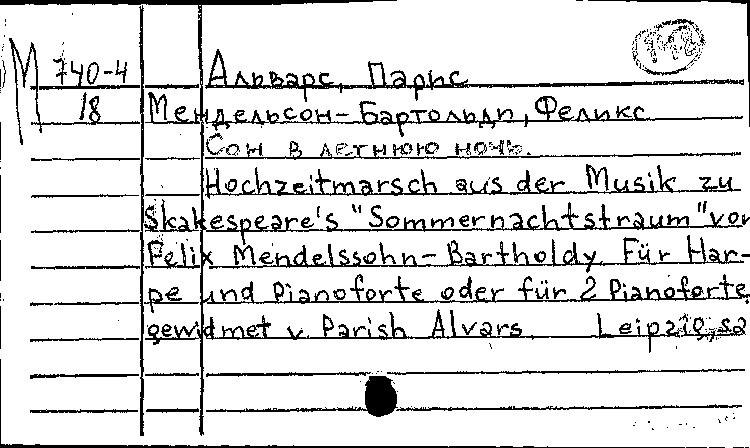 М 740-4 Альварс, Парис
18 Мендельсон-Бартольди, Феликс
Сон в летнюю ночь.
Hochzeitmarsch aus der Musik zu
Skakespeare's "Sommernachtstraum" von
Felix Mendelssohn-Bartholdy. Für Har-
pe und Pianoforte oder für 2 Pianoforte
gewidmet v. Parish Alvars. Leipzig, sa